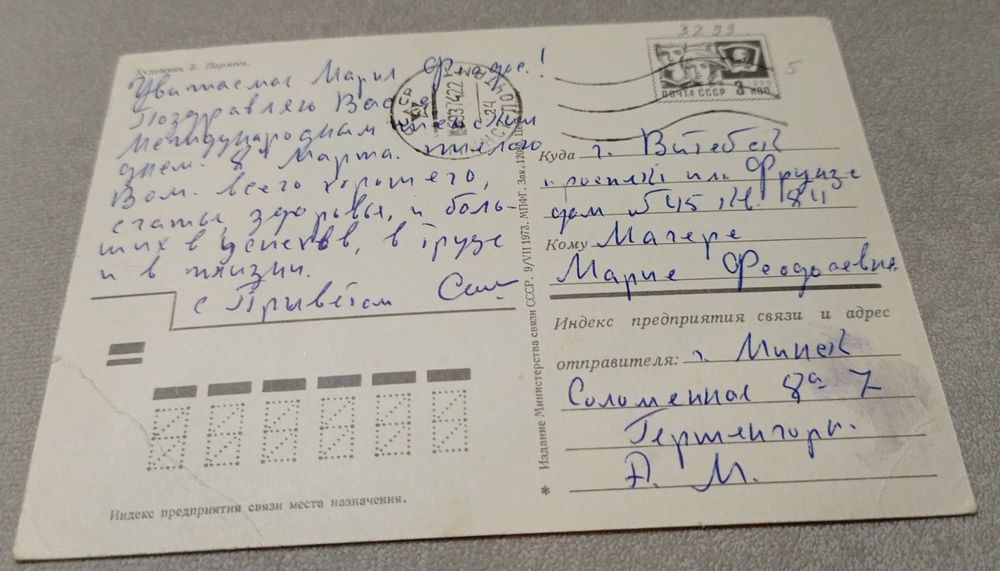 Художник Б. Пармеев.
Уважаемая Мария
Поздравляю Вас с
Международным женским
днем. 8 Марта. Желаю
Вам. всего хорошего,
счастья, здоровья, и боль-
ших в успехов, в труде
и в жизни.
с Приветом
32 99
5
ПОЧТА СССР 3 КОП
СССР
Куда г. Витебск
проспект им Фрунзе
дом №45 кв. 84
Кому Магере
Марие Феодосеевне
Индекс предприятия связи и адрес
отправителя: г. Минск
Соломенная 8а 7
Герменгорн.
А. М.
Издание Министерства связи СССР. 9/VII 1973. МПФГ. Зак. 1200
*
Индекс предприятия связи места назначения.